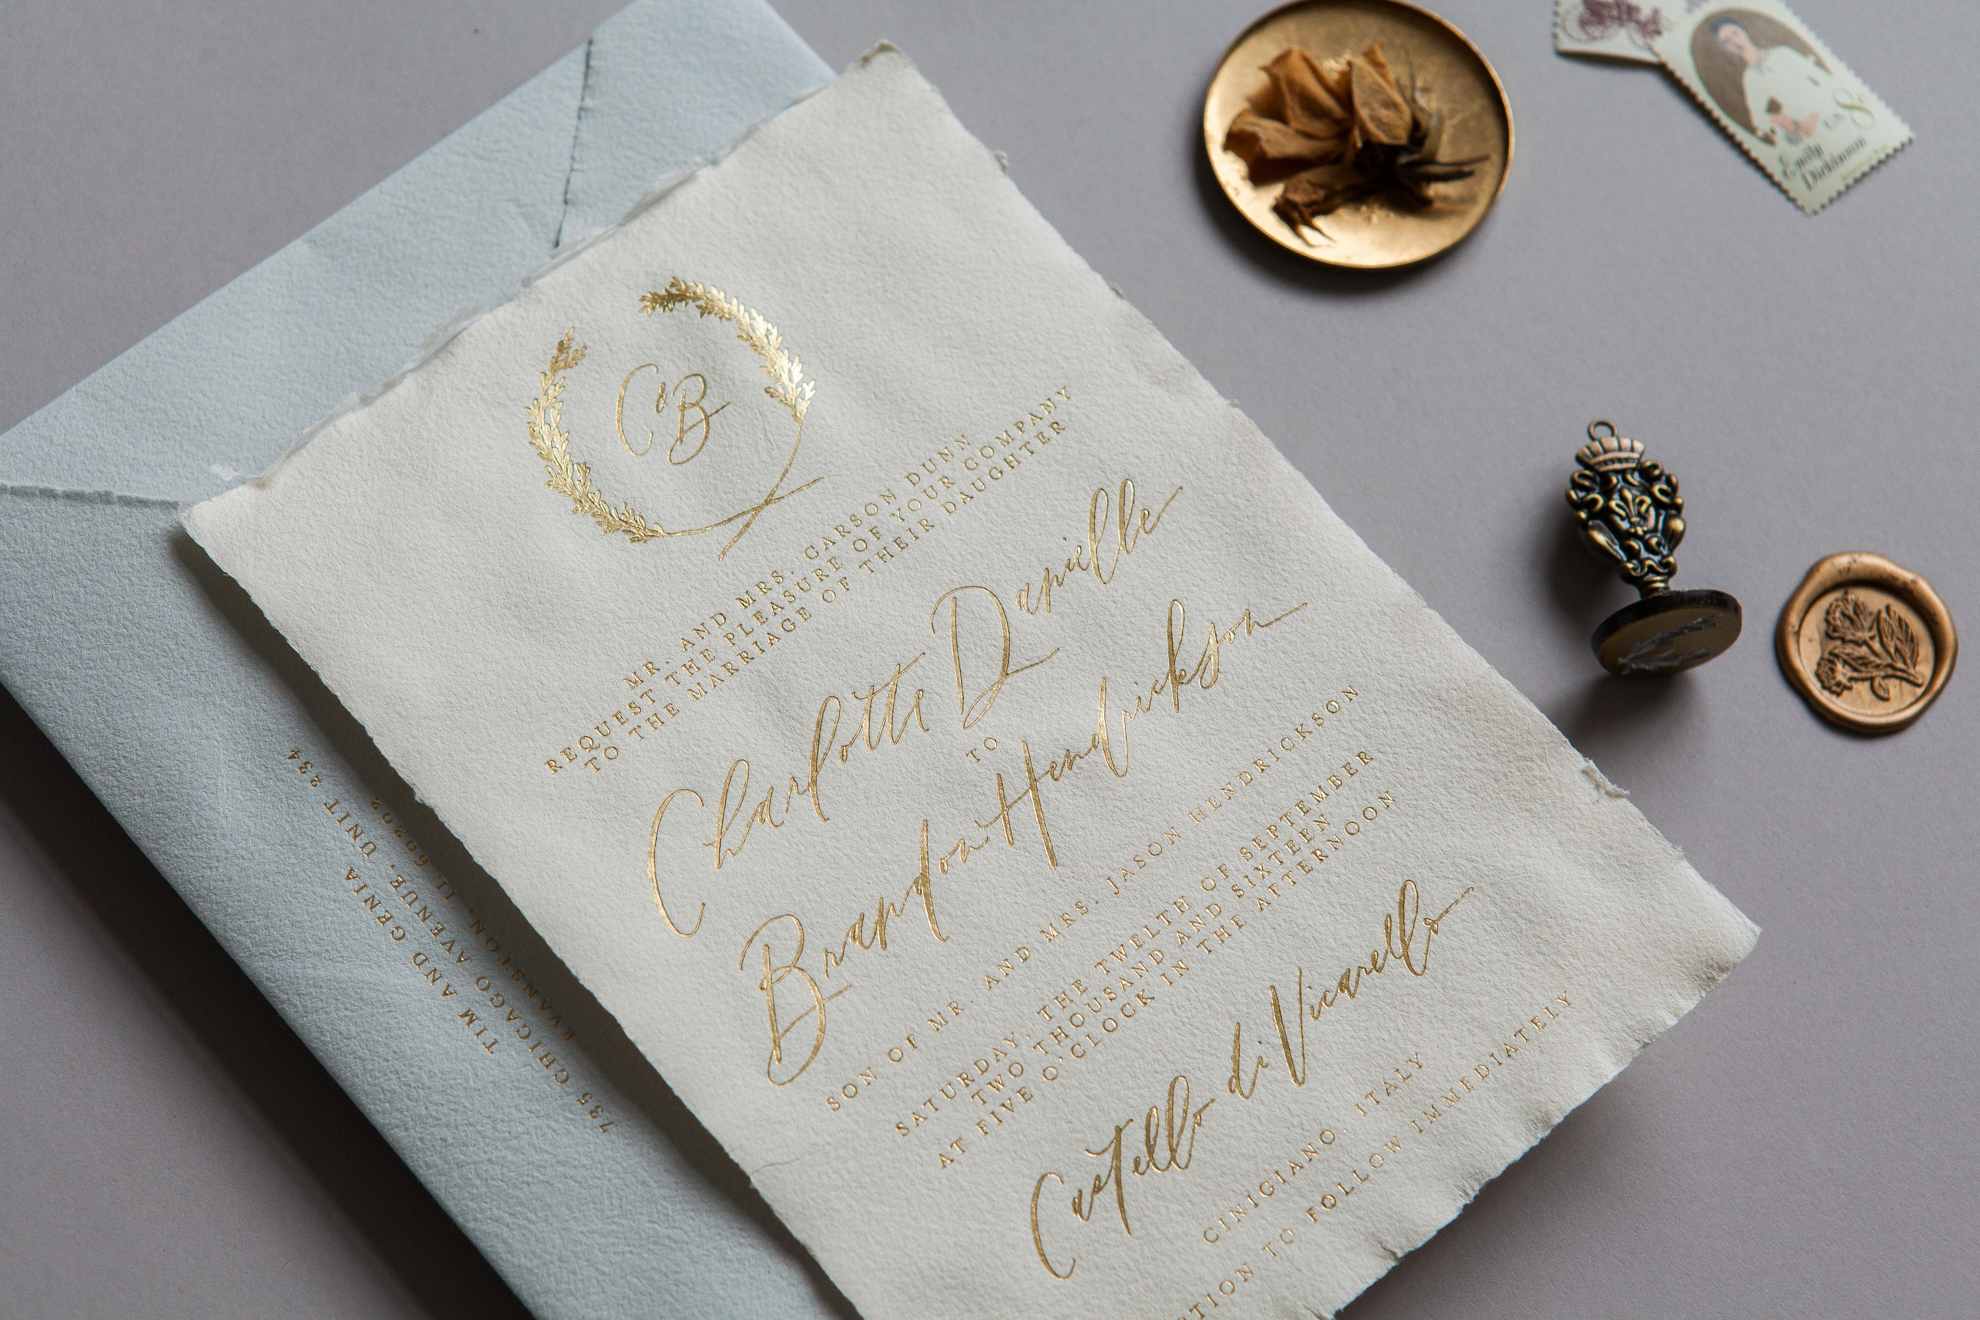 C & B
MR. AND MRS. CARSON DUNN
REQUEST THE PLEASURE OF YOUR COMPANY
TO THE MARRIAGE OF THEIR DAUGHTER
Charlotte Danielle
TO
Brandon Hendrickson
SON OF MR. AND MRS. JASON HENDRICKSON
SATURDAY, THE TWELTH OF SEPTEMBER
TWO THOUSAND AND SIXTEEN
AT FIVE O'CLOCK IN THE AFTERNOON
Castello di Vicarello
CINIGIANO, ITALY
TO FOLLOW IMMEDIATELY
TIM AND GENIA
735 CHICAGO AVENUE, UNIT 234
EVANSTON, IL 60202
US 8c
Emily
Dickinson